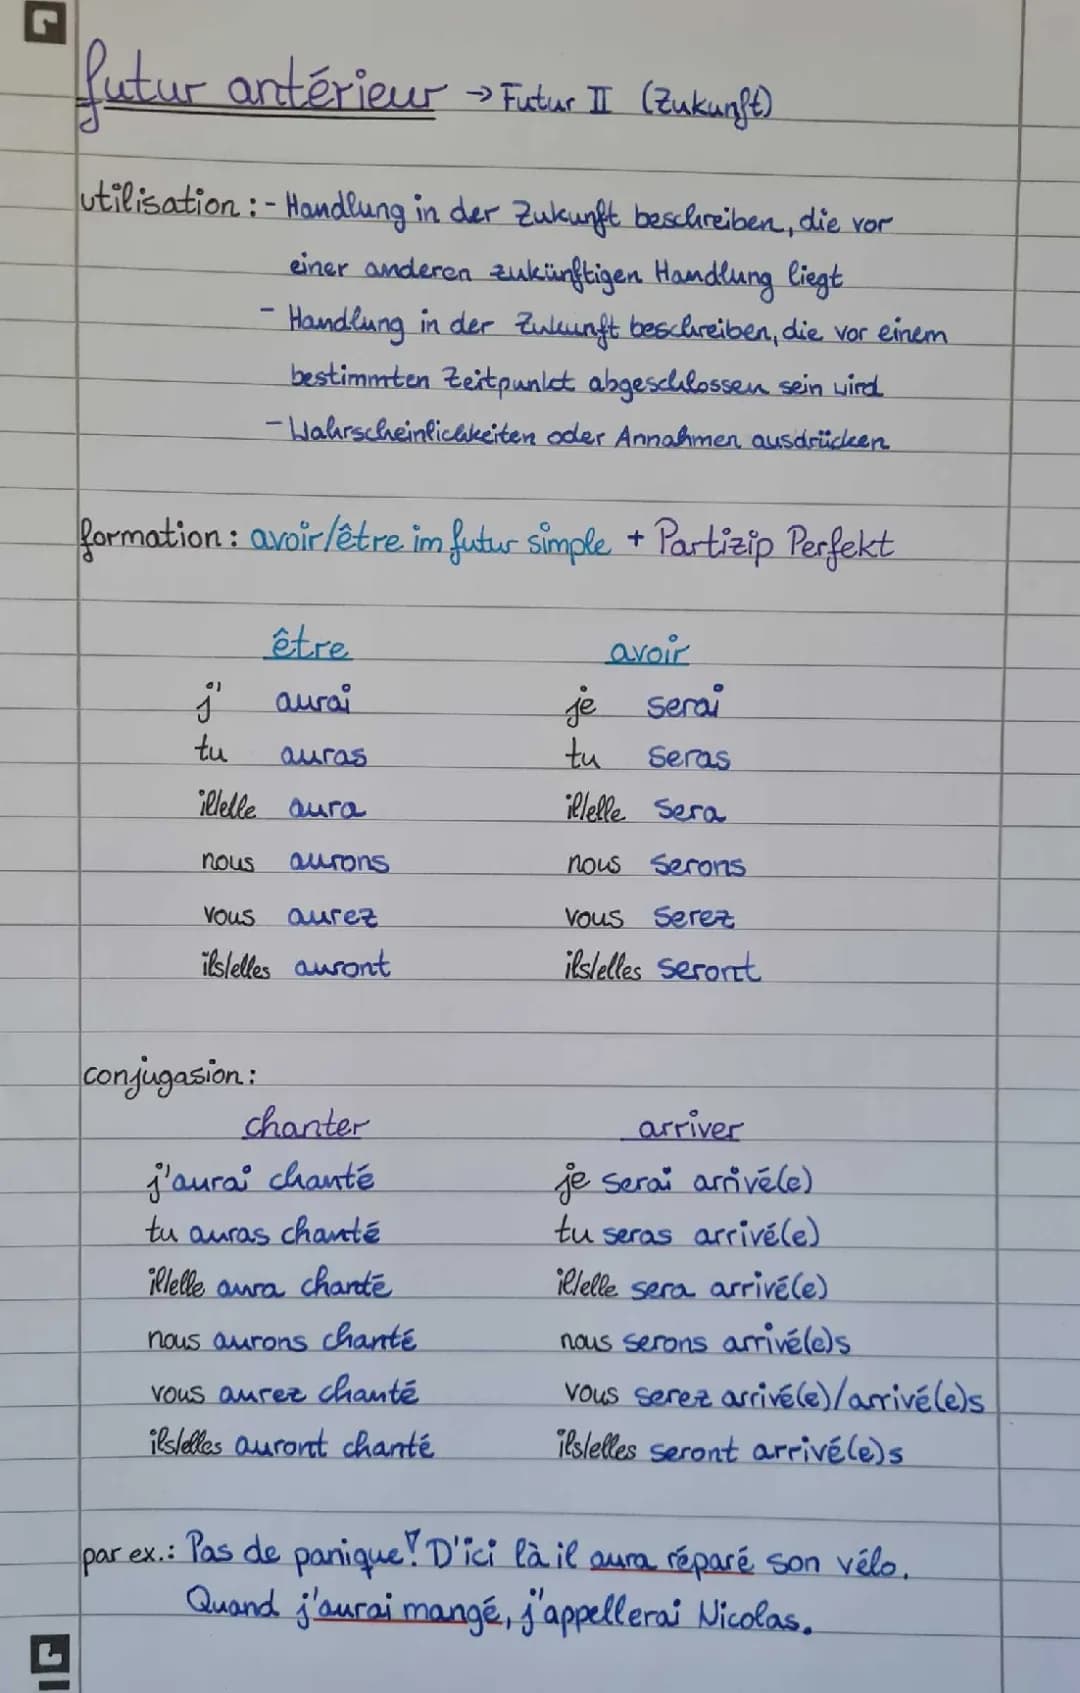 futur antérieur → Futur II (Zukunft)
utilisation: - Handlung in der Zukunft beschreiben, die vor
einer anderen zukünftigen Handlung liegt
- Handlung in der Zukunft beschreiben, die vor einem
bestimmten Zeitpunkt abgeschlossen sein wird
- Wahrscheinlichkeiten oder Annahmen ausdrücken
formation: avoir/être im futur simple + Partizip Perfekt
être avoir
j' aurai je serai
tu auras tu seras
il/elle aura il/elle sera
nous aurons nous serons
vous aurez vous serez
ils/elles auront ils/elles seront
conjugasion:
chanter arriver
j'aurai chanté je serai arrivé(e)
tu auras chanté tu seras arrivé(e)
il/elle aura chanté il/elle sera arrivé(e)
nous aurons chanté nous serons arrivé(e)s
vous aurez chanté vous serez arrivé(e)/arrivé(e)s
ils/elles auront chanté ils/elles seront arrivé(e)s
par ex.: Pas de panique! D'ici là il aura réparé son vélo.
Quand j'aurai mangé, j'appellerai Nicolas.